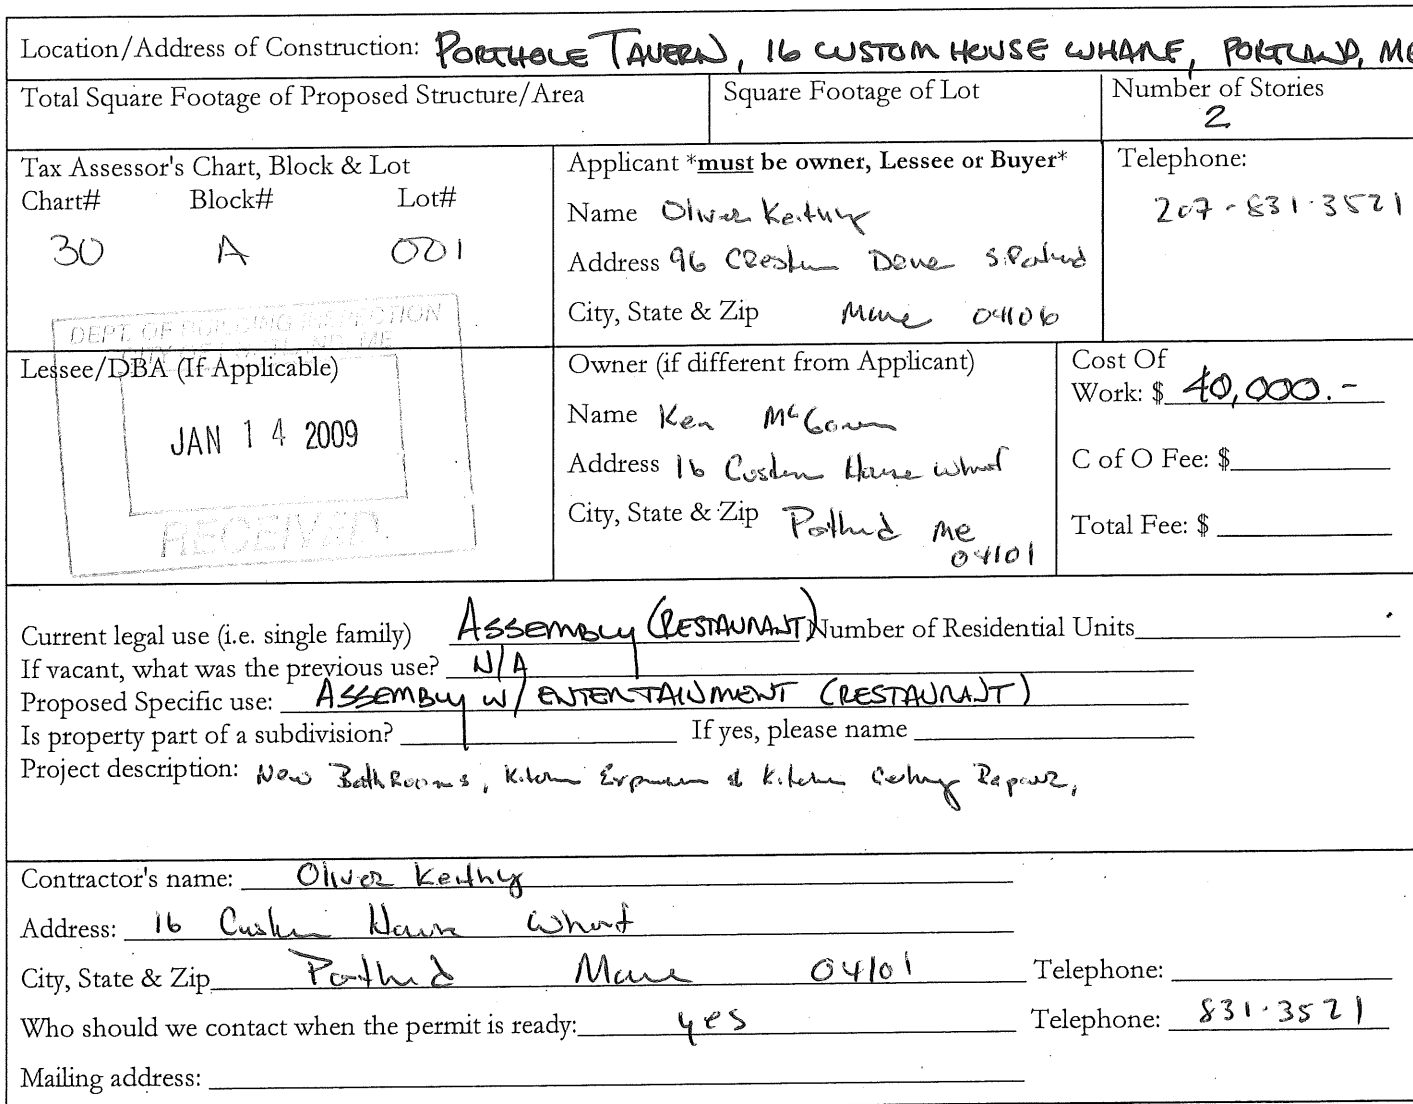 Location/Address of Construction: PORTHOLE TAVERN, 16 CUSTOM HOUSE WHARF, PORTLAND, ME
Total Square Footage of Proposed Structure/Area
Square Footage of Lot
Number of Stories
2
Tax Assessor's Chart, Block & Lot
Chart# Block# Lot#
30 A 001
Applicant *must be owner, Lessee or Buyer*
Name Oliver Keithly
Address 96 Drive S. Portland
City, State & Zip Maine 04106
Telephone:
207-831-3521
DEPT. OF BUILDING INSPECTION
CITY OF PORTLAND, ME
JAN 14 2009
RECEIVED
Lessee/DBA (If Applicable)
Owner (if different from Applicant)
Name Ken McGowan
Address 16 Custom House Wharf
City, State & Zip Portland ME
04101
Cost Of
Work: $ 40,000.-
C of O Fee: $
Total Fee: $
Current legal use (i.e. single family) ASSEMBLY (RESTAURANT) Number of Residential Units
If vacant, what was the previous use? N/A
Proposed Specific use: ASSEMBLY W/ ENTERTAINMENT (RESTAURANT)
Is property part of a subdivision? If yes, please name
Project description: New BathRooms, Kitchen Expansion & Kitchen Ceiling Repair,
Contractor's name: Oliver Keithly
Address: 16 Custom House Wharf
City, State & Zip Portland Maine 04101 Telephone:
Who should we contact when the permit is ready: yes Telephone: 831-3521
Mailing address: